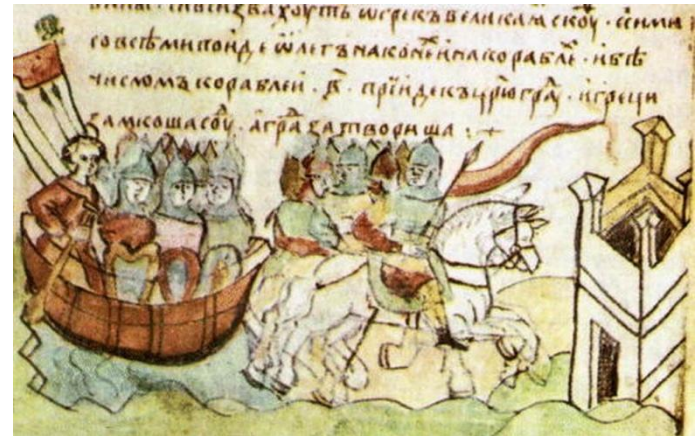 сі вси звахоуть ѿ грекъ великаꙗ скоуⷴ · с сими
со всѣми поиде ѡлегъ на конеⷯ и на кораблеⷯ · и бѣ
числомъ кораблеи · в҃ · прїиде къ црюграⷣ · и греци
замкоша соуⷣ · а граⷣ затвориша :· +